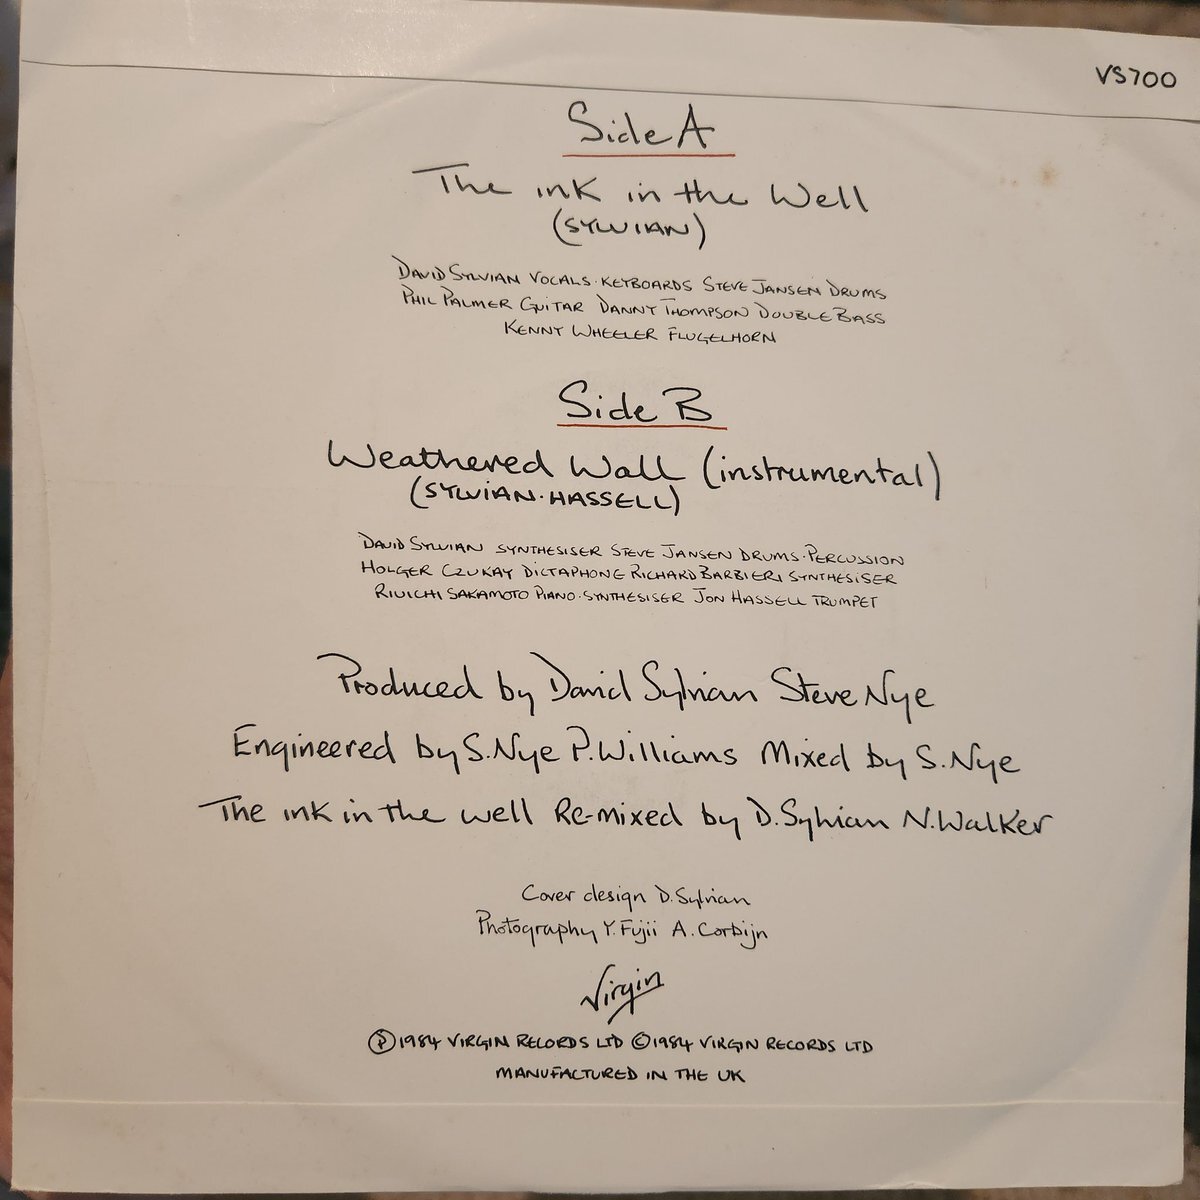 VS700
Side A
The ink in the Well
(SYLVIAN)
DAVID SYLVIAN VOCALS·KEYBOARDS STEVE JANSEN DRUMS
PHIL PALMER GUITAR DANNY THOMPSON DOUBLE BASS
KENNY WHEELER FLUGELHORN
Side B
Weathered Wall (instrumental)
(SYLVIAN·HASSELL)
DAVID SYLVIAN SYNTHESISER STEVE JANSEN DRUMS·PERCUSSION
HOLGER CZUKAY DICTAPHONE RICHARD BARBIERI SYNTHESISER
RIUICHI SAKAMOTO PIANO·SYNTHESISER JON HASSELL TRUMPET
Produced by David Sylvian Steve Nye
Engineered by S.Nye P.Williams Mixed by S.Nye
The ink in the well Re-mixed by D.Sylvian N.Walker
Cover design D.Sylvian
Photography Y.Fujii A.Corbijn
Virgin
Ⓟ1984 VIRGIN RECORDS LTD ©1984 VIRGIN RECORDS LTD
MANUFACTURED IN THE UK